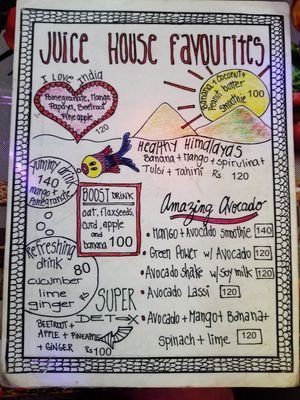 JUICE HOUSE FAVOURITES
I Love India
Pomegranate, Mango,
Papaya, Beetroot
Pineapple
120
Banana + coconut +
Peanut butter
smoothie
100
HEALTHY HIMALAYAS
Banana + Mango + spirulina +
Tulsi + Tahini Rs 120
yummy drink
140
mango +
pomegranate
BOOST DRINK
oat, flaxseeds,
curd, apple
and
banana 100
Amazing Avocado
• Mango + Avocado smoothie 140
• Green Power w/ Avocado 120
• Avocado Shake w/ Soy milk 120
• Avocado Lassi 120
• Avocado + Mango + Banana +
Spinach + lime 120
refreshing
drink
80
cucumber
lime
ginger
SUPER
DETOX
BEETROOT +
APPLE + PINEAPPLE
+ GINGER Rs 100